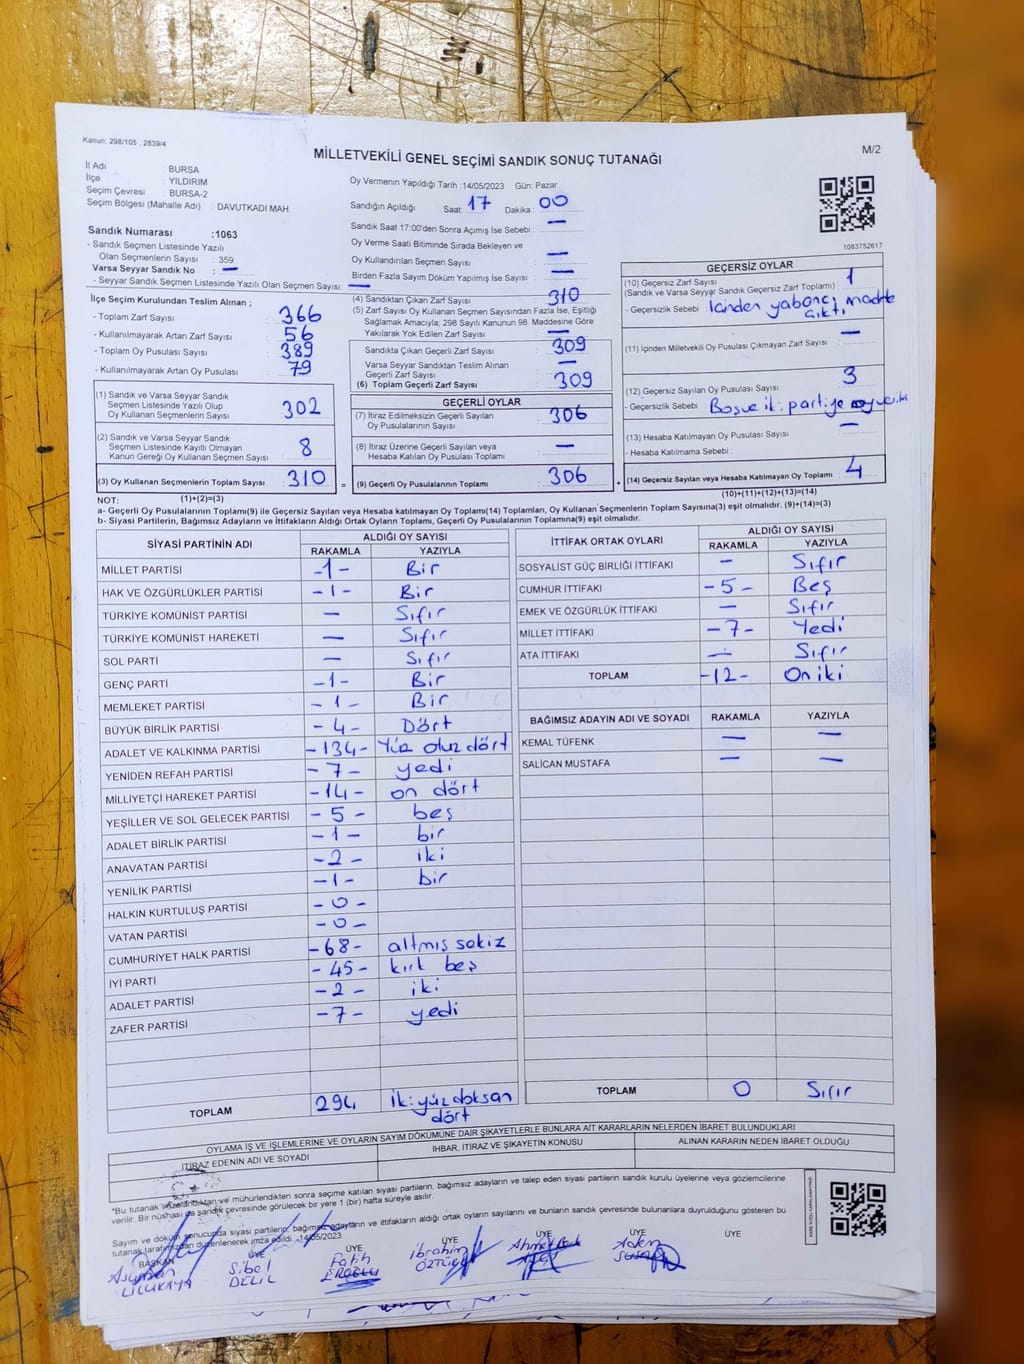 Kanun: 298/105 , 2839/4
MİLLETVEKİLİ GENEL SEÇİMİ SANDIK SONUÇ TUTANAĞI
M/2
İl Adı : BURSA
İlçe : YILDIRIM
Seçim Çevresi : BURSA-2
Seçim Bölgesi (Mahalle Adı) : DAVUTKADI MAH
Sandık Numarası :1063
- Sandık Seçmen Listesinde Yazılı
Olan Seçmenlerin Sayısı : 359
Varsa Seyyar Sandık No : —
- Seyyar Sandık Seçmen Listesinde Yazılı Olan Seçmen Sayısı: —
Oy Vermenin Yapıldığı Tarih :14/05/2023 Gün: Pazar
Sandığın Açıldığı Saat: 17 Dakika : 00
Sandık Saat 17:00'den Sonra Açımış İse Sebebi : —
Oy Verme Saati Bitiminde Sırada Bekleyen ve
Oy Kullandırılan Seçmen Sayısı : —
Birden Fazla Sayım Döküm Yapılmış İse Sayısı : —
1083752617
İlçe Seçim Kurulundan Teslim Alınan ;
- Toplam Zarf Sayısı : 366
- Kullanılmayarak Artan Zarf Sayısı : 56
- Toplam Oy Pusulası Sayısı : 389
- Kullanılmayarak Artan Oy Pusulası : 79
(1) Sandık ve Varsa Seyyar Sandık
Seçmen Listesinde Yazılı Olup
Oy Kullanan Seçmenlerin Sayısı : 302
(2) Sandık ve Varsa Seyyar Sandık
Seçmen Listesinde Kayıtlı Olmayan
Kanun Gereği Oy Kullanan Seçmen Sayısı : 8
(3) Oy Kullanan Seçmenlerin Toplam Sayısı : 310
(4) Sandıktan Çıkan Zarf Sayısı : 310
(5) Zarf Sayısı Oy Kullanan Seçmen Sayısından Fazla İse, Eşitliği
Sağlamak Amacıyla; 298 Sayılı Kanunun 98. Maddesine Göre
Yakılarak Yok Edilen Zarf Sayısı : —
Sandıkta Çıkan Geçerli Zarf Sayısı : 309
Varsa Seyyar Sandıktan Teslim Alınan
Geçerli Zarf Sayısı : —
(6) Toplam Geçerli Zarf Sayısı : 309
GEÇERLİ OYLAR
(7) İtiraz Edilmeksizin Geçerli Sayılan
Oy Pusulalarının Sayısı : 306
(8) İtiraz Üzerine Geçerli Sayılan veya
Hesaba Katılan Oy Pusulası Toplamı : —
= (9) Geçerli Oy Pusulalarının Toplamı : 306
GEÇERSİZ OYLAR
(10) Geçersiz Zarf Sayısı : 1
(Sandık ve Varsa Seyyar Sandık Geçersiz Zarf Toplamı)
- Geçersizlik Sebebi : İçinden yabancı madde
çıktı
(11) İçinden Milletvekili Oy Pusulası Çıkmayan Zarf Sayısı : —
(12) Geçersiz Sayılan Oy Pusulası Sayısı : 3
- Geçersizlik Sebebi : Boş ve iki partiye
(13) Hesaba Katılmayan Oy Pusulası Sayısı : —
- Hesaba Katılmama Sebebi :
+ (14) Geçersiz Sayılan veya Hesaba Katılmayan Oy Toplamı : 4
NOT: (1)+(2)=(3)
(10)+(11)+(12)+(13)=(14)
a- Geçerli Oy Pusulalarının Toplamı(9) ile Geçersiz Sayılan veya Hesaba Katılmayan Oy Toplamı(14) Toplamları, Oy Kullanan Seçmenlerin Toplam Sayısına(3) eşit olmalıdır. (9)+(14)=(3)
b- Siyasi Partilerin, Bağımsız Adayların ve İttifakların Aldığı Ortak Oyların Toplamı, Geçerli Oy Pusulalarının Toplamına(9) eşit olmalıdır.
SİYASİ PARTİNİN ADI ALDIĞI OY SAYISI
RAKAMLA YAZIYLA
MİLLET PARTİSİ -1- Bir
HAK VE ÖZGÜRLÜKLER PARTİSİ -1- Bir
TÜRKİYE KOMÜNİST PARTİSİ — Sıfır
TÜRKİYE KOMÜNİST HAREKETİ — Sıfır
SOL PARTİ — Sıfır
GENÇ PARTİ -1- Bir
MEMLEKET PARTİSİ -1- Bir
BÜYÜK BİRLİK PARTİSİ -4- Dört
ADALET VE KALKINMA PARTİSİ -134- Yüz otuz dört
YENİDEN REFAH PARTİSİ -7- yedi
MİLLİYETÇİ HAREKET PARTİSİ -14- on dört
YEŞİLLER VE SOL GELECEK PARTİSİ -5- beş
ADALET BİRLİK PARTİSİ -1- bir
ANAVATAN PARTİSİ -2- iki
YENİLİK PARTİSİ -1- bir
HALKIN KURTULUŞ PARTİSİ -0-
VATAN PARTİSİ -0-
CUMHURİYET HALK PARTİSİ -68- altmış sekiz
İYİ PARTİ -45- kırk beş
ADALET PARTİSİ -2- iki
ZAFER PARTİSİ -7- yedi
TOPLAM 294 İkiyüzdoksan
dört
İTTİFAK ORTAK OYLARI ALDIĞI OY SAYISI
RAKAMLA YAZIYLA
SOSYALİST GÜÇ BİRLİĞİ İTTİFAKI — Sıfır
CUMHUR İTTİFAKI -5- Beş
EMEK VE ÖZGÜRLÜK İTTİFAKI — Sıfır
MİLLET İTTİFAKI -7- Yedi
ATA İTTİFAKI — Sıfır
TOPLAM -12- On iki
BAĞIMSIZ ADAYIN ADI VE SOYADI RAKAMLA YAZIYLA
KEMAL TÜFENK — —
SALİCAN MUSTAFA — —
TOPLAM 0 Sıfır
OYLAMA İŞ VE İŞLEMLERİNE VE OYLARIN SAYIM DÖKÜMÜNE DAİR ŞİKAYETLERLE BUNLARA AİT KARARLARIN NELERDEN İBARET BULUNDUKLARI
İTİRAZ EDENİN ADI VE SOYADI İHBAR, İTİRAZ VE ŞİKAYETİN KONUSU ALINAN KARARIN NEDEN İBARET OLDUĞU
"Bu tutanak imzalandıktan ve mühürlendikten sonra seçime katılan siyasi partilerin, bağımsız adayların ve talep eden siyasi partilerin sandık kurulu üyelerine veya gözlemcilerine
verilir. Bir nüshası da sandık çevresinde görülecek bir yere 1 (bir) hafta süreyle asılır.
Sayım ve döküm sonucunda siyasi partilerin, bağımsız adayların ve ittifakların aldığı ortak oyların sayılarını ve bunların sandık çevresinde bulunanlara duyrulduğunu gösteren bu
tutanak tarafımızdan düzenlenerek imza edildi. 14/05/2023
BAŞKAN ÜYE ÜYE ÜYE ÜYE ÜYE ÜYE
Sibel Fatih İbrahim
DELİL EROĞLU